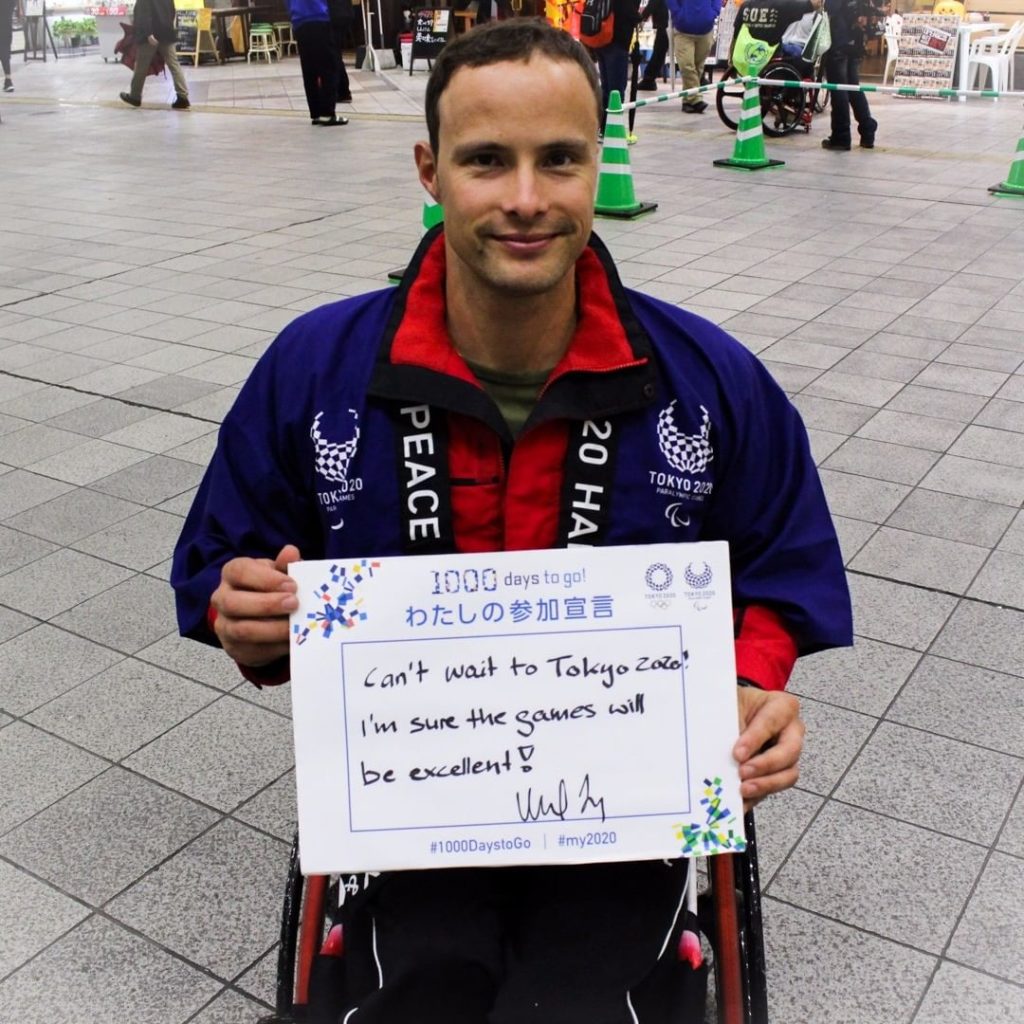 SOE
PEACE
20 HA
TOKYO 2020
PARALYMPIC GAMES
TOKYO 2020
PARALYMPIC GAMES
1000 days to go!
わたしの参加宣言
TOKYO 2020
TOKYO 2020
Can't wait to Tokyo 2020!
I'm sure the games will
be excellent!
#1000DaystoGo | #my2020